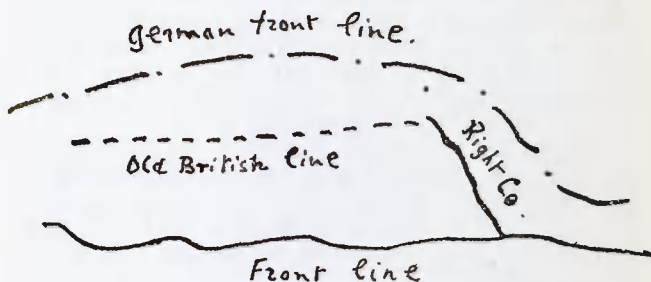 German front line.
Old British line
Right Co.
Front line